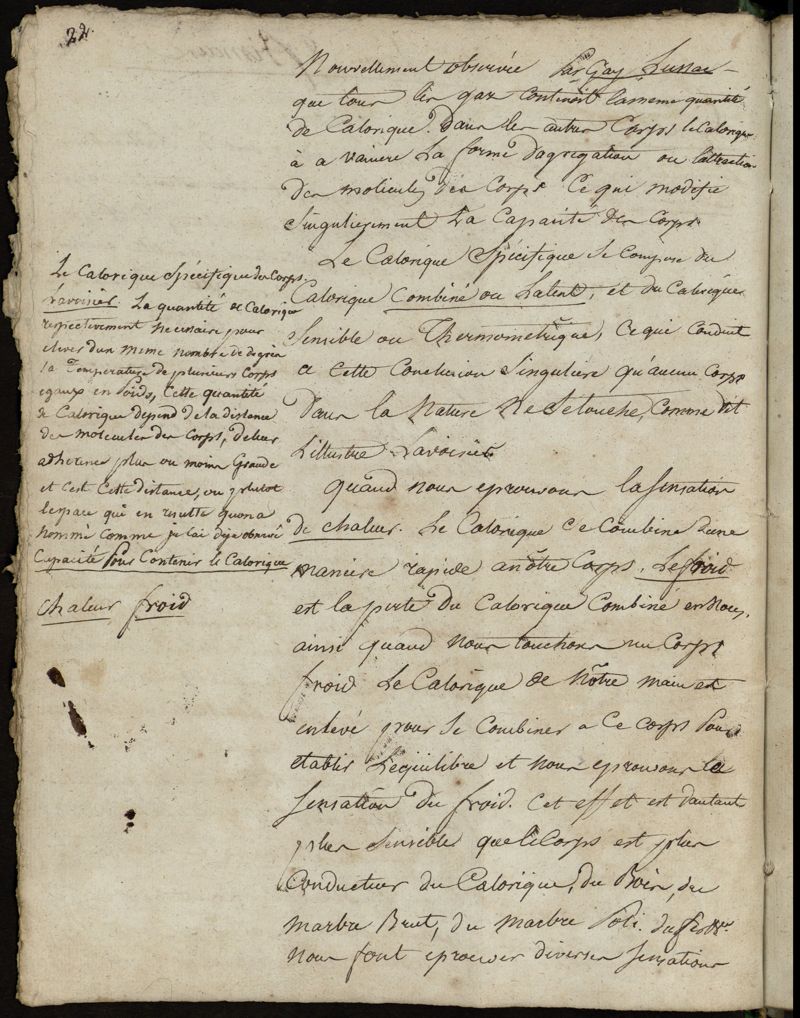 22.
Nouvellement observée Par Gay Lussac -
que tous les gaz contenoit lameme quantité
de Calorique. Dans les autres Corps le Calorique
à a vaincre La forme dagregation ou lattraction
des molicules des Corps Ce qui modifie
Singulierement La Capacité des Corps
Le Calorique Spécifique Se Compose du
Calorique Combiné ou Latent, et du Calorique
Sensible ou Thermometrique, Ce qui Conduit
a Cette Conclusion Singuliere qu'aucun Corps
Dans la Nature Ne Se touche, Comme dit
L'illustre Lavoisier
Quand nous eprouvons la Sensation
de chaleur. Le Calorique Ce Combine dune
maniere rapide anôtre Corps. Le froid
est la perte du Calorique Combiné en Nous,
ainsi quand nous touchons un Corps
froid Le Calorique de Nôtre main est
enlevé pour Se Combiner a Ce corps Pour
etablir Lequilibre et nous eprouvons la
Sensation du froid. Cet effet est d'autant
plus Sensible que le Corps est plus
Conducteur du Calorique, du Bois, du
marbre Brut, du marbre Poli. du fer &c
nous font eprouver diverses Sensations
Le Calorique Spécifique des Corps
Lavoisier. La quantité de Calorique
respectivement necessaire pour
elever dun meme nombre de degrés
la Temperature de plusieurs Corps
egaux en Poids, Cette quantité
de Calorique depend de la distance
des molecules des Corps, de leur
adherence plus ou moins Grande
et c'est Cette distance, ou plutot
lespace qui en resulte quon a
nommé comme je lai deja observé
Capacité Pour Contenir le Calorique
chaleur froid